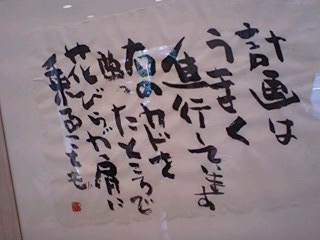 計画は
うまく
進行しています
右のカドを
曲ったところで
花びらが肩に
乗ることも